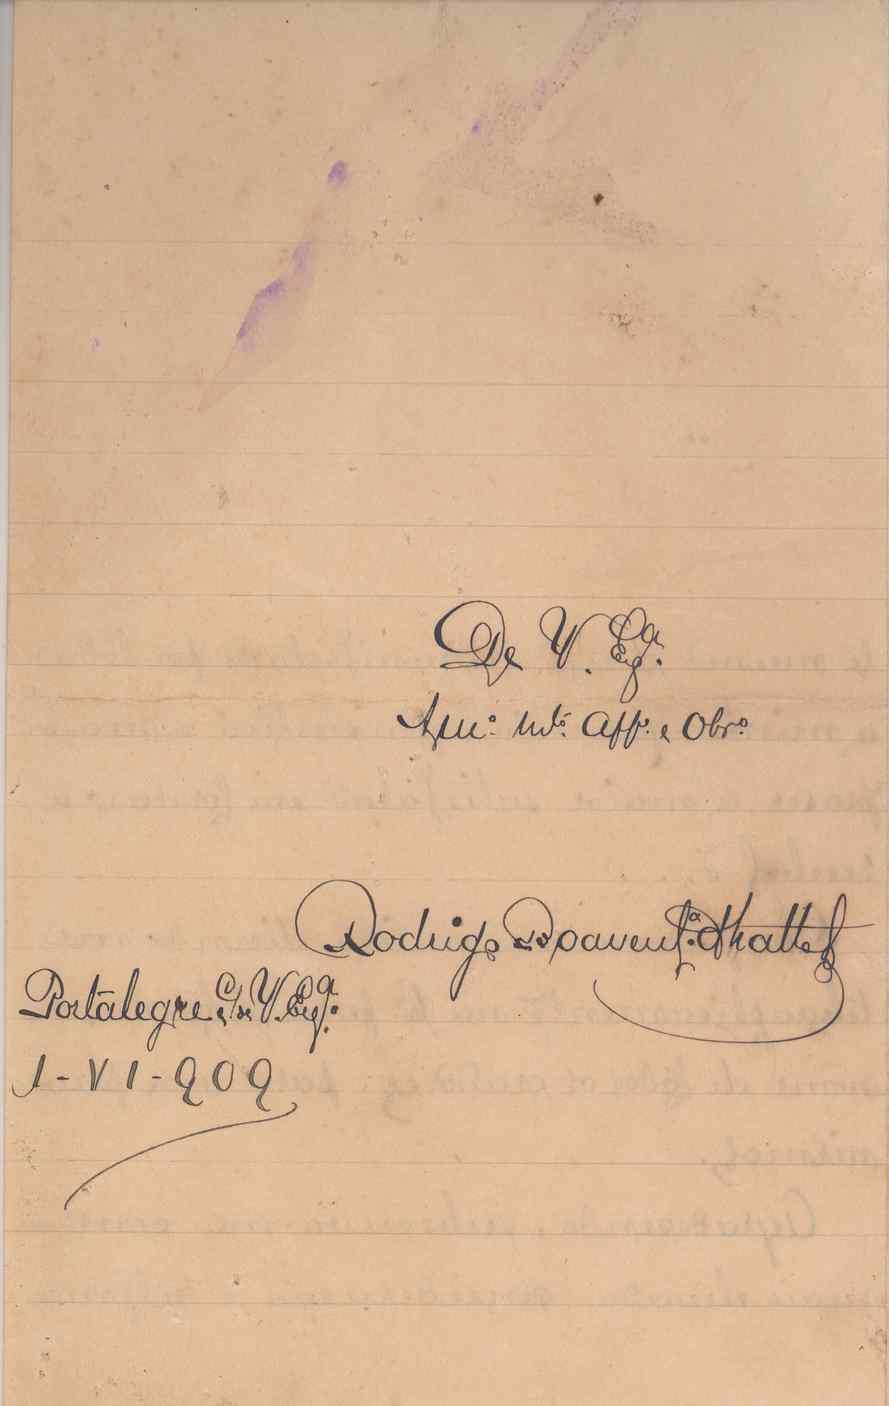 De V. Exª.
Amº. Mtº. Affº. e Obrº.
Rodrigo Boaventª.
Portalegre, C. de V. Exª.
1-VI-909